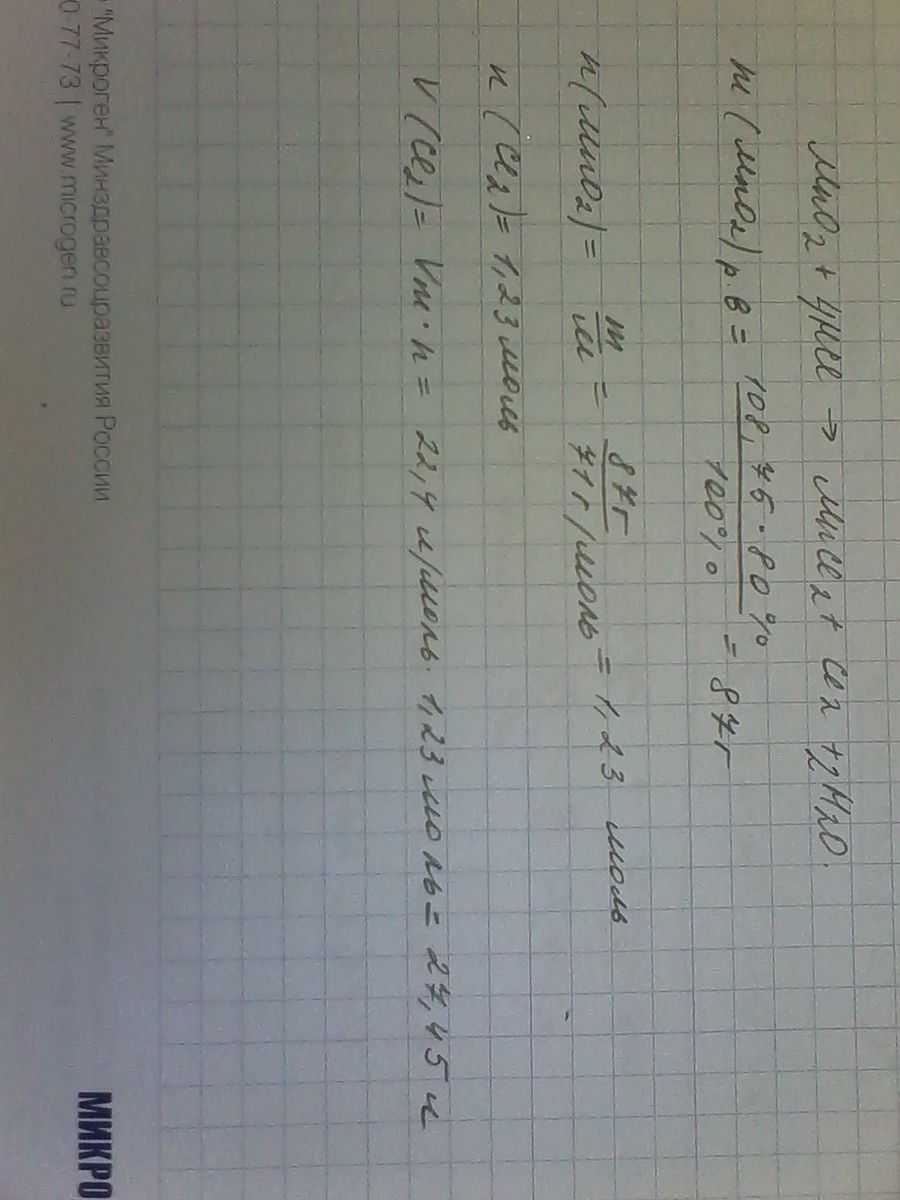 MnO2 + 4HCl → MnCl2 + Cl2 + 2H2O.
m(MnO2) р.в = 108,75·80% / 100% = 87г
n(MnO2) = m/M = 87г / 71г/моль = 1,23 моль
n(Cl2) = 1,23 моль
V(Cl2) = Vm·n = 22,4 л/моль·1,23 моль = 27,45 л
"Микроген" Минздравсоцразвития России
0-77-73 | www.microgen.ru
МИКРО